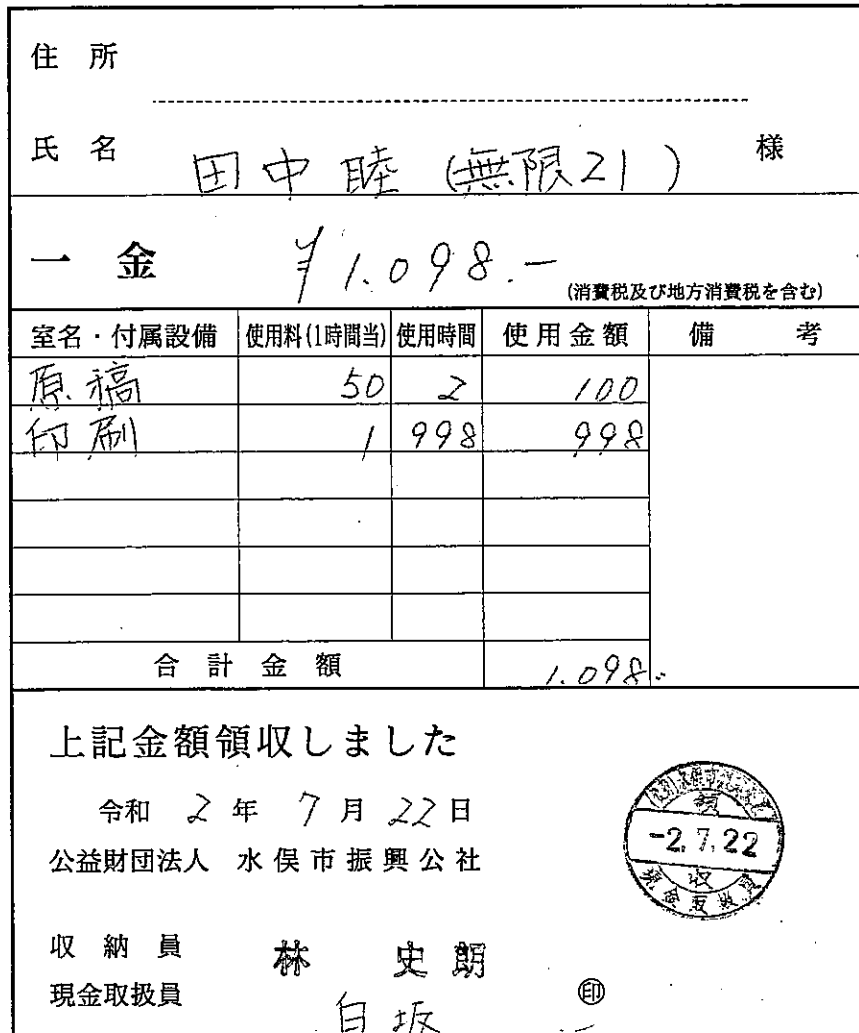 住所
氏名 田中睦(無限21) 様
一金 ¥1.098.-
(消費税及び地方消費税を含む)
室名・付属設備 使用料(1時間当) 使用時間 使用金額 備考
原稿 50 2 100
印刷 1 998 998
合計金額 1.098.
上記金額領収しました
令和 2 年 7 月 22 日
公益財団法人 水俣市振興公社
領
-2.7.22
収
現金取扱員
収納員 林 史朗
現金取扱員 白坂 印